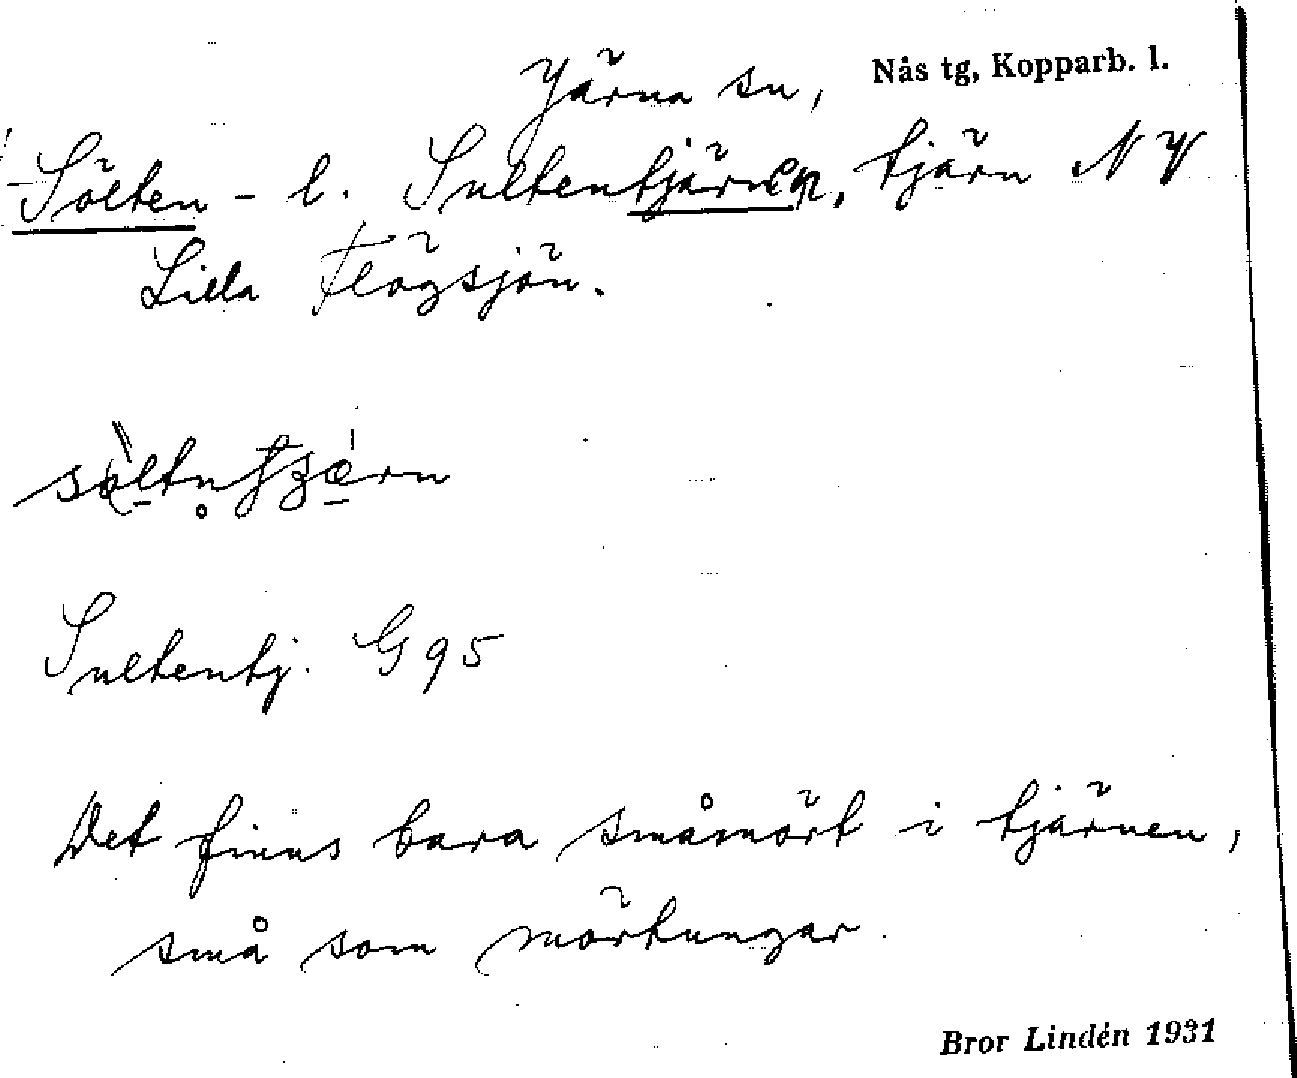 Järna sn, Nås tg, Kopparb. l.
Sölten - l. Sultentjärnen, tjärn NV
Lilla Flögsjön.
Sultentj. G 95
Det finns bara småmört i tjärnen,
små som mörtungar.
Bror Lindén 1931